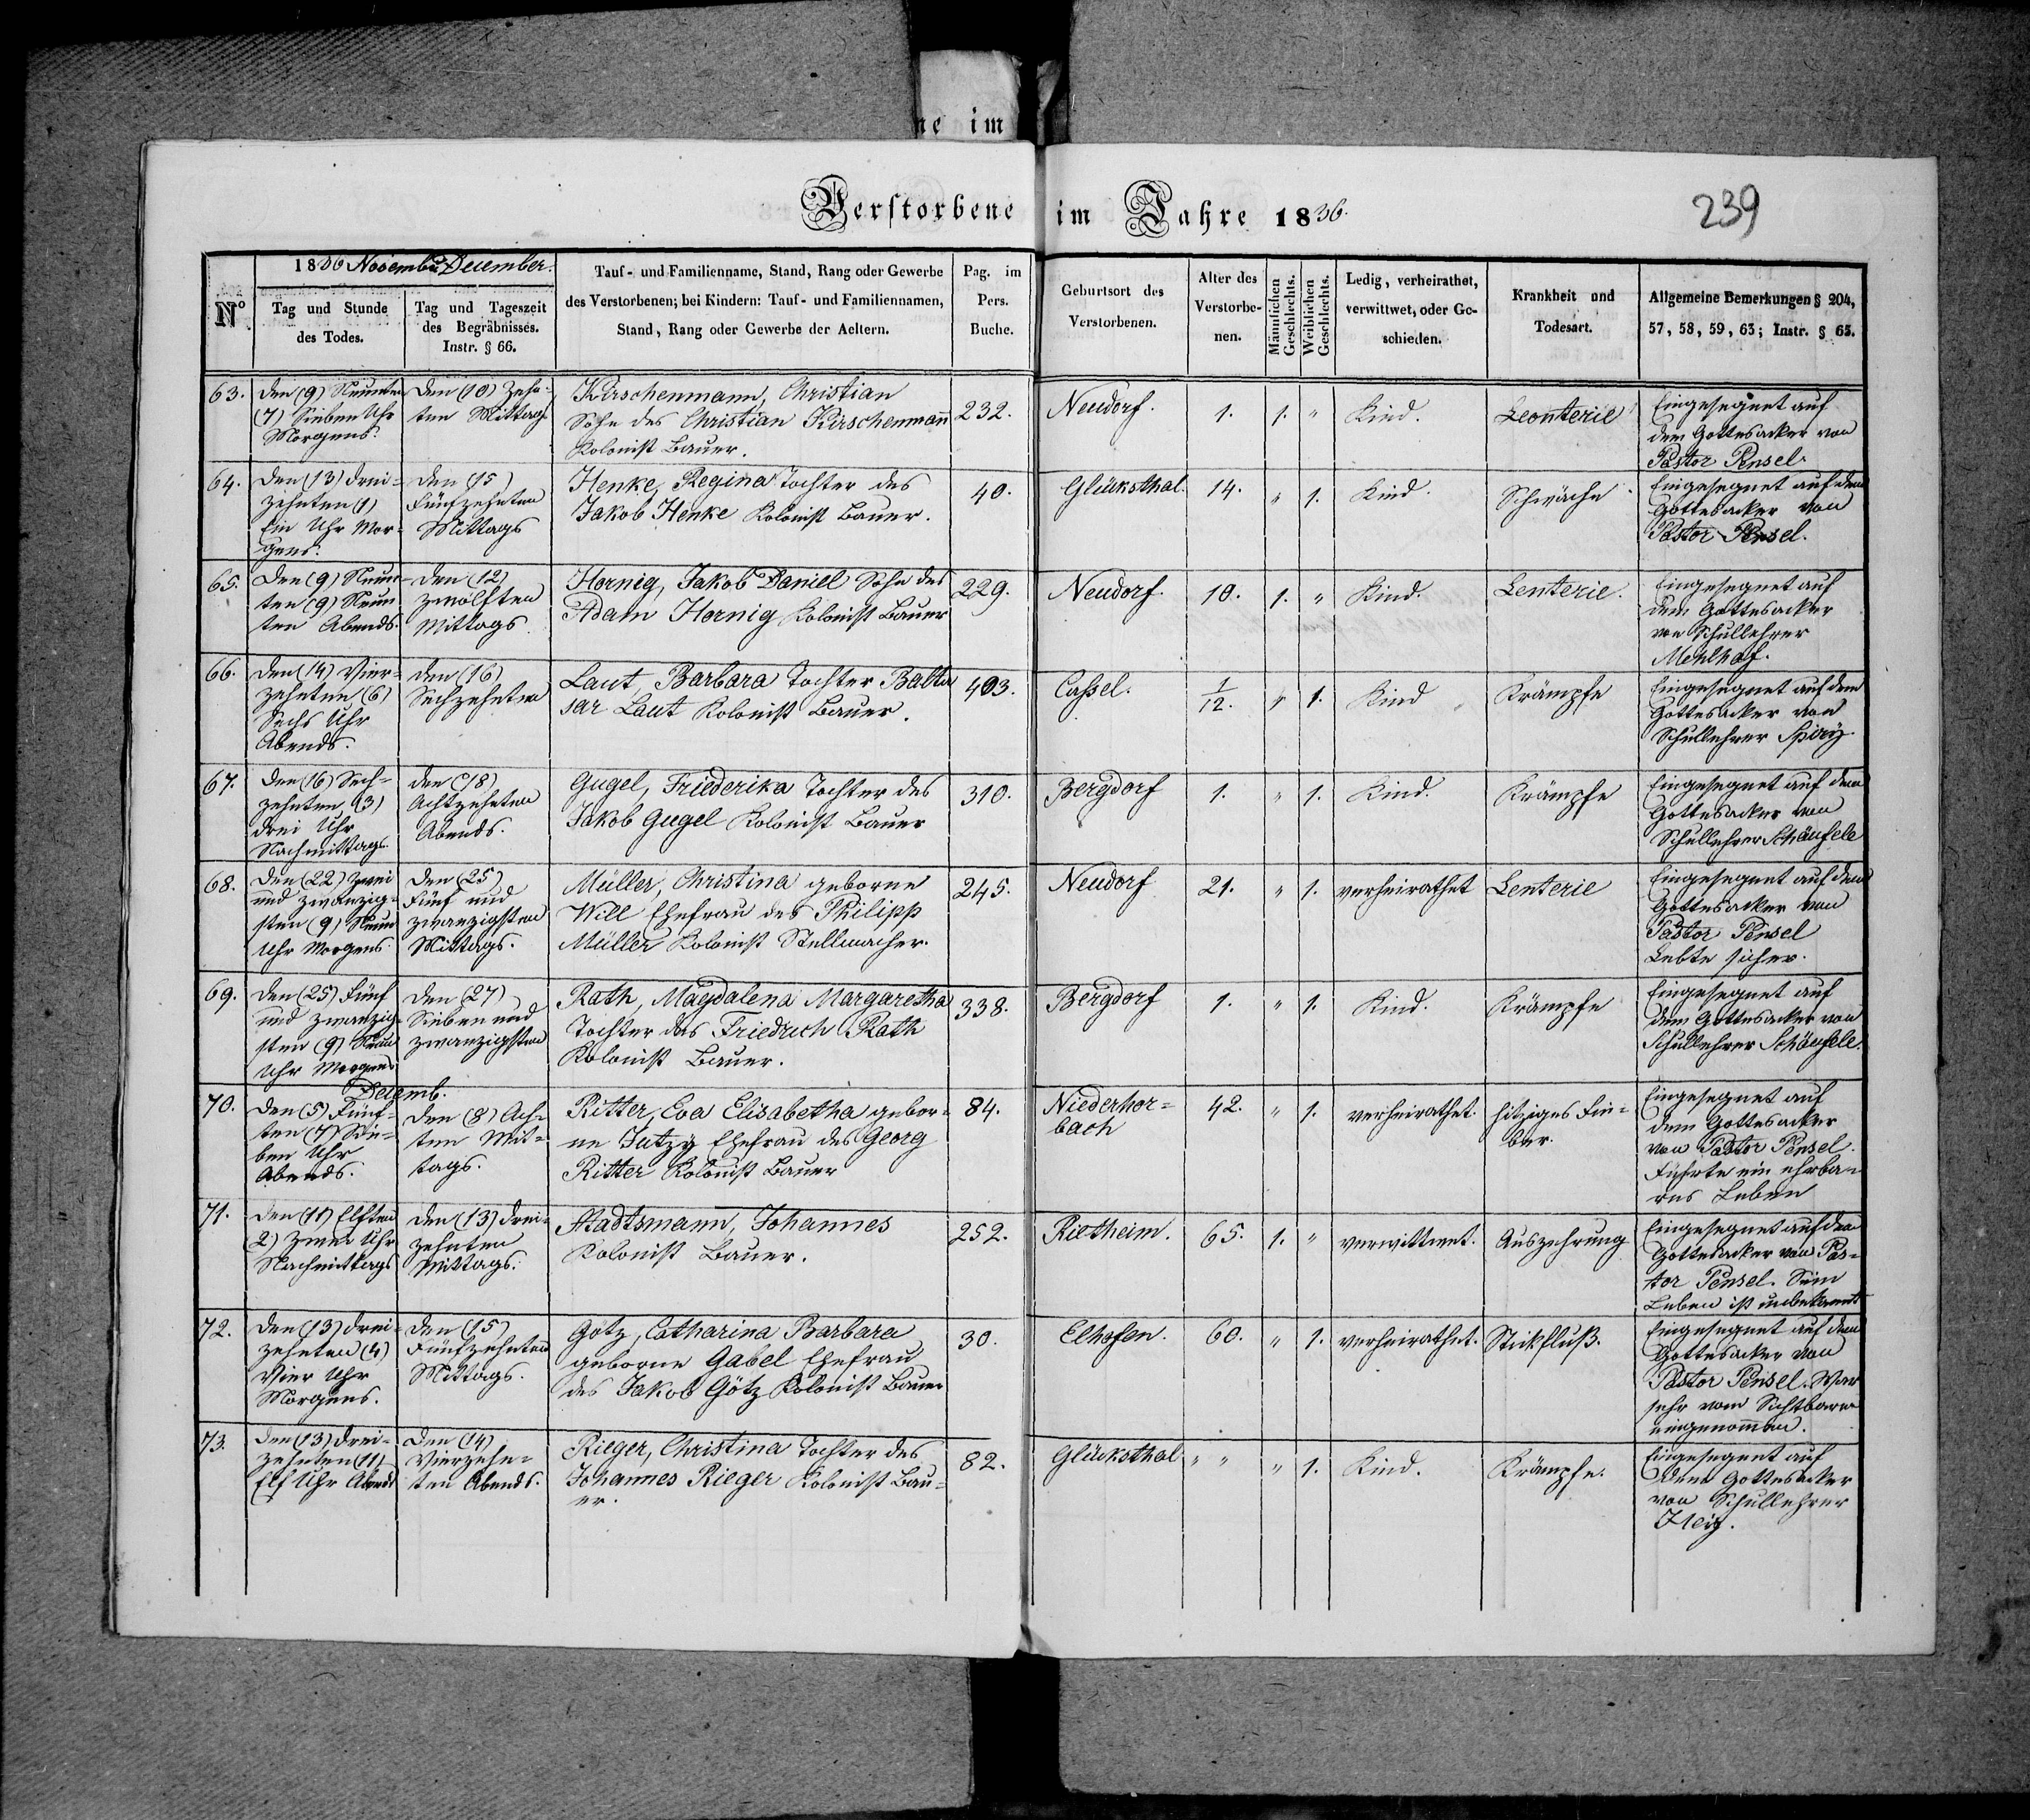 ne im
Verstorbene im Jahre 1836.
239
Nº
1836 November December.
Tag und Stunde
des Todes.
Tag und Tageszeit
des Begräbnisses.
Instr. § 66.
Tauf- und Familienname, Stand, Rang oder Gewerbe
des Verstorbenen; bei Kindern: Tauf- und Familiennamen,
Stand, Rang oder Gewerbe der Aeltern.
Pag. im
Pers.
Buche.
Geburtsort des
Verstorbenen.
Alter des
Verstorbe-
nen.
Männlichen
Geschlechts.
Weiblichen
Geschlechts.
Ledig, verheirathet,
verwittwet, oder Ge-
schieden.
Krankheit und
Todesart.
Allgemeine Bemerkungen § 204,
57, 58, 59, 63; Instr. § 65.
63.
den (9) Neunten
(7) Sieben Uhr
Morgens.
den (10) Zehn-
ten Mittag.
Kirschenmann, Christian
Sohn des Christian Kirschenmann
Kolonist Bauer.
232.
Neudorf.
1.
1.
"
Kind.
Leonterie
Eingesegnet auf
dem Gottesacker von
Pastor Pensel.
64.
den (13) drei-
zehnten (1)
Ein Uhr Mor-
gens.
den (15)
Fünfzehnten
Mittags
Henke, Regina Tochter des
Jakob Henke Kolonist Bauer.
40.
Glücksthal.
14.
"
1.
Kind.
Schwäche
Eingesegnet auf dem
Gottesacker von
Pastor Pensel.
65.
den (9) Neun-
ten (9) Neun
ten Abends.
den (12)
zwölften
Mittags.
Hornig, Jakob Daniel Sohn des
Adam Hornig Kolonist Bauer
229.
Neudorf.
10.
1.
"
Kind.
Lenterie.
Eingesegnet auf
dem Gottesacker
von Schullehrer
Mehlhaf.
66.
den (14) Vier-
zehnten (6)
Sechs Uhr
Abends.
den (16)
Sechzehnten
Laut, Barbara Tochter Baltha
sar Laut Kolonist Bauer.
403.
Cassel.
1/12.
"
1.
Kind
Krämpfe
Eingesegnet auf dem
Gottesacker von
Schullehrer Spiry.
67.
den (16) Sech-
zehnten (3)
drei Uhr
Nachmittags.
den (18)
Achtzehnten
Abends.
Gugel, Friederika Tochter des
Jakob Gugel Kolonist Bauer
310.
Bergdorf
1.
"
1.
Kind.
Krämpfe
Eingesegnet auf dem
Gottesacker von
Schullehrer Schäufele
68.
den (22) zwei
und zwanzig-
sten (9) Neun
Uhr Morgens.
den (25)
Fünf und
zwanzigsten
Mittags.
Müller, Christina geborne
Will Ehefrau des Philipp
Müller Kolonist Stellmacher.
245.
Neudorf
21.
"
1.
verheirathet
Lenterie
Eingesegnet auf dem
Gottesacker von
Pastor Pensel
Lebte sicher.
69.
den (25) Fünf
und zwanzig-
sten (9) Neun
Uhr Morgens
den (27)
Sieben und
zwanzigsten
Rath, Magdalena Margaretha
Tochter des Friedrich Rath
Kolonist Bauer.
338.
Bergdorf
1.
"
1.
Kind.
Krämpfe
Eingesegnet auf
dem Gottesacker von
Schullehrer Schäufele.
Decemb.
70.
den (5) Fünf-
ten (7) Sie-
ben Uhr
Abends.
den (8) Ach-
ten Mit-
tags.
Ritter, Eva Elisabetha gebor-
ne Jutzy Ehefrau des Georg
Ritter Kolonist Bauer
84.
Niederhor-
bach
42.
"
1.
verheirathet.
hitziges Fie-
ber.
Eingesegnet auf
dem Gottesacker
von Pastor Pensel.
Führte ein ehrba-
res Leben
71.
den (11) Elften
2) Zwei Uhr
Nachmittags
den (13) drei-
zehnten
Mittags.
Stadtsmann, Johannes
Kolonist Bauer.
252.
Rietheim.
65.
1.
"
verwittwet.
Auszehrung
Eingesegnet auf dem
Gottesacker von Pas-
tor Pensel. Sein
Leben ist unbekannt
72.
den (13) drei-
zehnten (4)
Vier Uhr
Morgens.
den (15)
Fünfzehnten
Mittags.
Götz, Catharina Barbara
geborne Gabel Ehefrau
des Jakob Götz Kolonist Bauer
30.
Elhofen.
60.
"
1.
verheirathet.
Stickfluß.
Eingesegnet auf dem
Gottesacker von
Pastor Pensel. War
sehr vom Sichtbaren
eingenommen.
73.
den (13) drei-
zehnten (11)
Elf Uhr Abends
den (14)
Vierzehn-
ten Abends.
Rieger, Christina Tochter des
Johannes Rieger Kolonist Bau-
er.
82.
Glücksthal
" "
"
1.
Kind.
Krämpfe.
Eingesegnet auf
dem Gottesacker
von Schullehrer